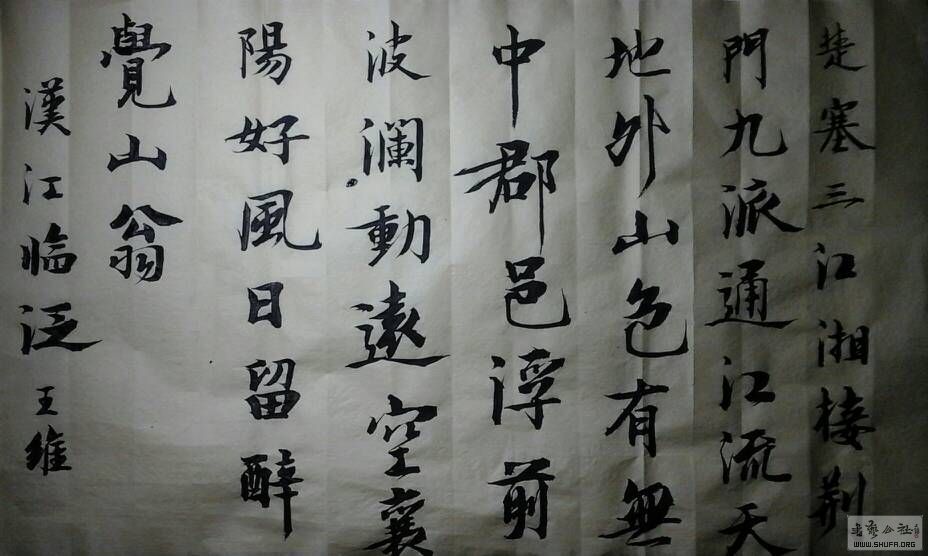 楚塞三江湘接荆
門九派通江流天
地外山色有無
中郡邑浮前
波澜動遠空襄
陽好風日留醉
覺山翁
漢江临泛 王維
书艺公社
WWW.SHUFA.ORG